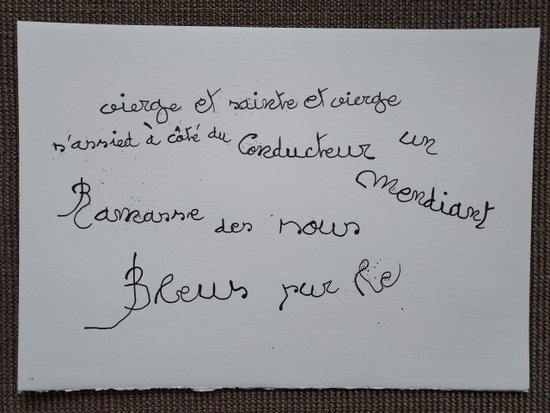 vierge et sainte et vierge
s'assied à côté du Conducteur un
Mendiant
Ramasse des sous
Bleus par